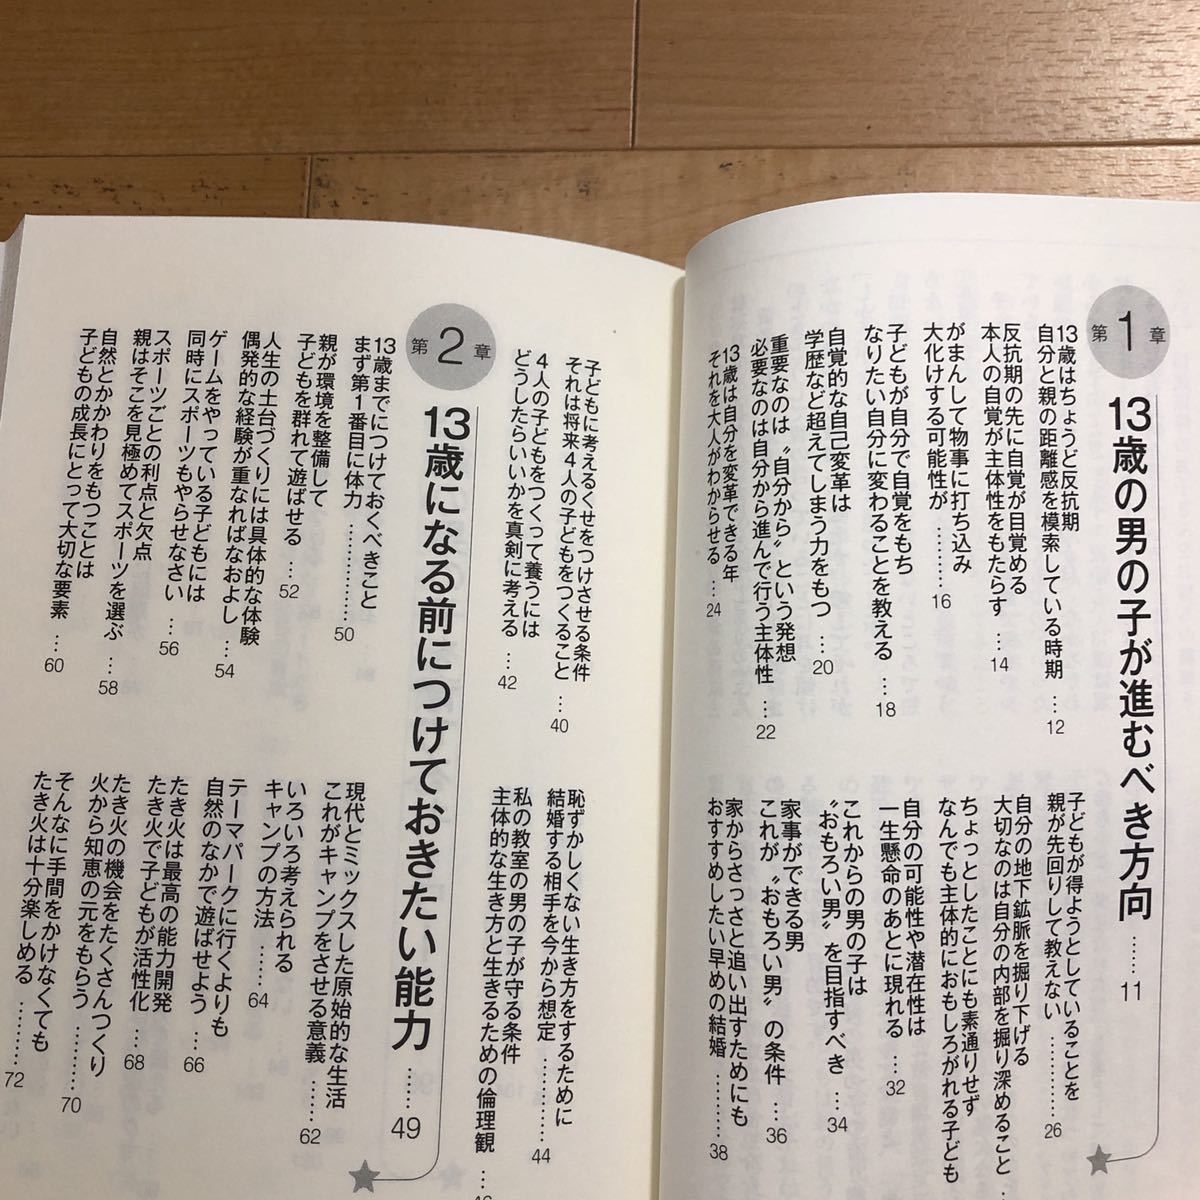 第1章
13歳の男の子が進むべき方向……11
13歳はちょうど反抗期
自分と親の距離感を模索している時期…12
反抗期の先に自覚が目覚める
本人の自覚が主体性をもたらす…14
がまんして物事に打ち込み
大化けする可能性が………16
子どもが自分で自覚をもち
なりたい自分に変わることを教える…18
自覚的な自己変革は
学歴など超えてしまう力をもつ…20
重要なのは〝自分から〟という発想
必要なのは自分から進んで行う主体性…22
13歳は自分を変革できる年
それを大人がわからせる…24
子どもが得ようとしていることを
親が先回りして教えない………26
自分の地下鉱脈を掘り下げる
大切なのは自分の内部を掘り深めること…
ちょっとしたことにも素通りせず
なんでも主体的におもしろがれる子ども
自分の可能性や潜在性は
一生懸命のあとに現れる…32
これからの男の子は
〝おもろい男〟を目指すべき…34
家事ができる男
これが〝おもろい男〟の条件…36
家からさっさと追い出すためにも
おすすめしたい早めの結婚……38
子どもに考えるくせをつけさせる条件
それは将来4人の子どもをつくること…40
4人の子どもをつくって養うには
どうしたらいいかを真剣に考える…42
恥ずかしくない生き方をするために
結婚する相手を今から想定………44
私の教室の男の子が守る条件
主体的な生き方と生きるための倫理観…46
第2章
13歳になる前につけておきたい能力……49
13歳までにつけておくべきこと
まず第1番目に体力…………50
親が環境を整備して
子どもを群れて遊ばせる…52
人生の土台づくりには具体的な体験
偶発的な経験が重なればなおよし…54
ゲームをやっている子どもには
同時にスポーツもやらせなさい…56
スポーツごとの利点と欠点
親はそこを見極めてスポーツを選ぶ…58
自然とかかわりをもつことは
子どもの成長にとって大切な要素…60
現代とミックスした原始的な生活
これがキャンプをさせる意義……62
いろいろ考えられる
キャンプの方法……64
テーマパークに行くよりも
自然のなかで遊ばせよう……66
たき火は最高の能力開発
たき火で子どもが活性化…68
たき火の機会をたくさんつくり
火から知恵の元をもらう………70
そんなに手間をかけなくても
たき火は十分楽しめる………72